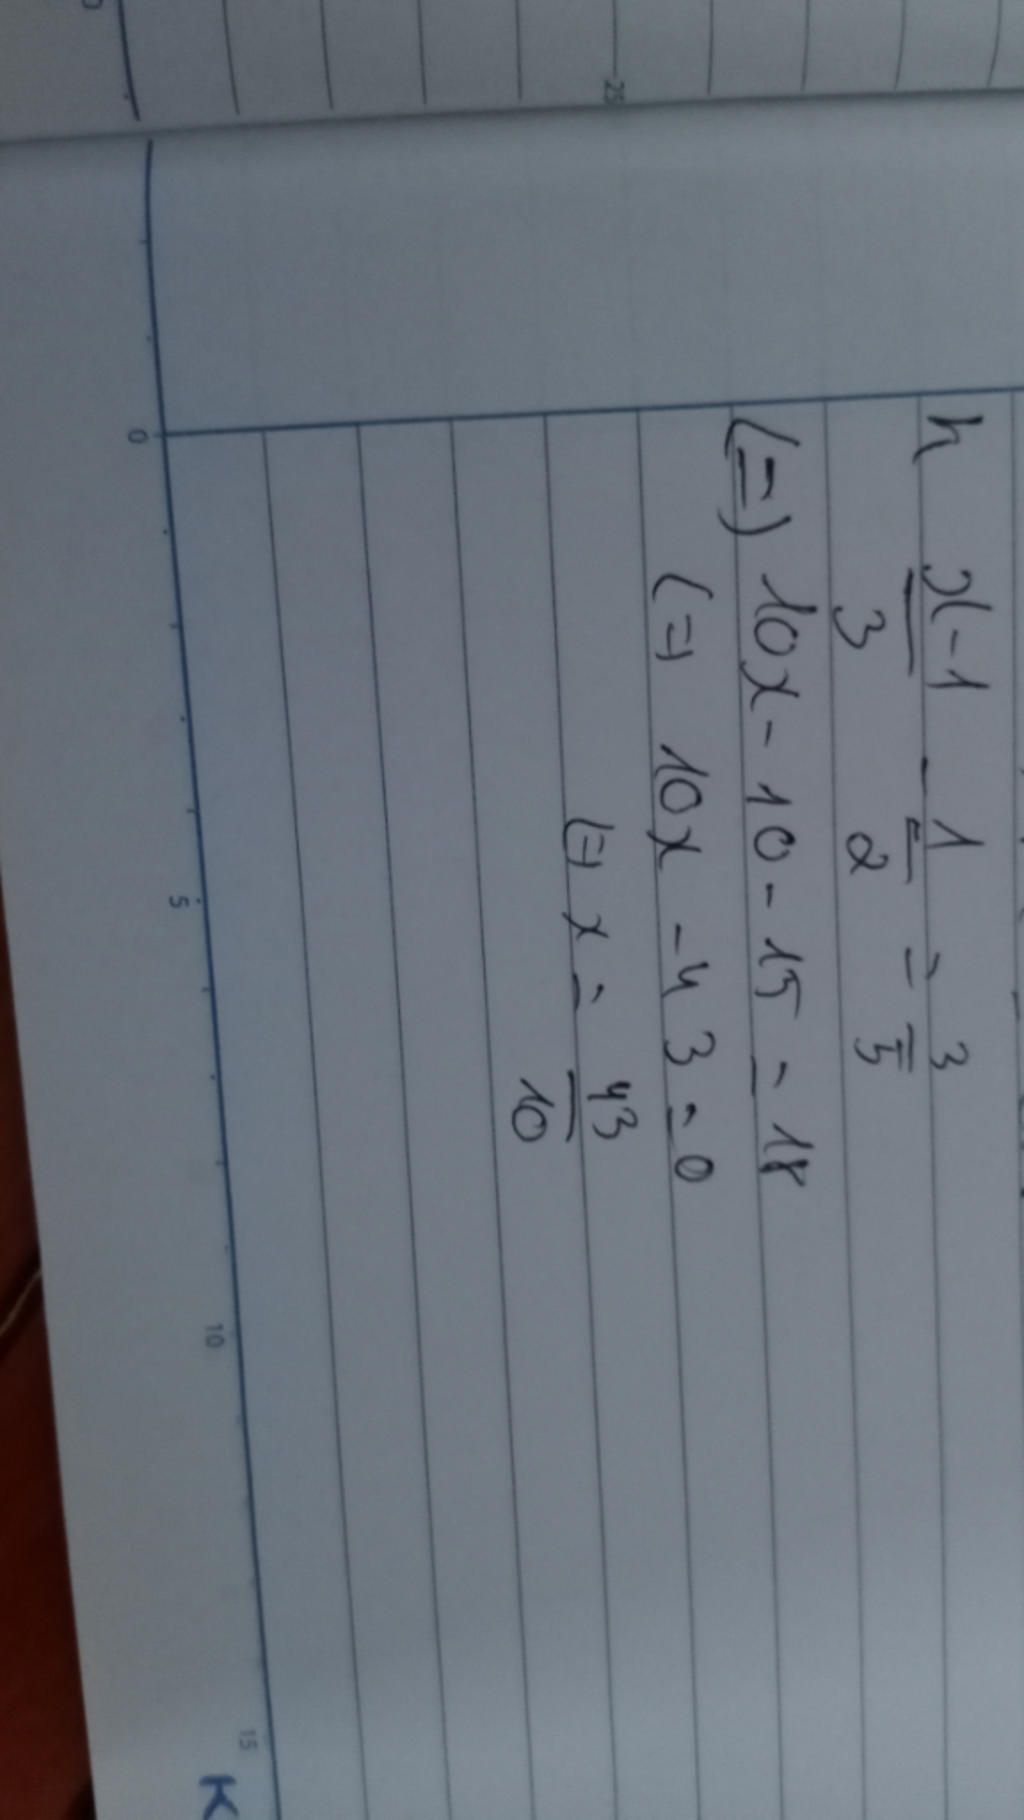 h x-1/3 - 1/2 = 3/5
(=) 10x - 10 - 15 = 18
(=) 10x - 43 = 0
(=) x = 43/10
25
0
5
10
15
K